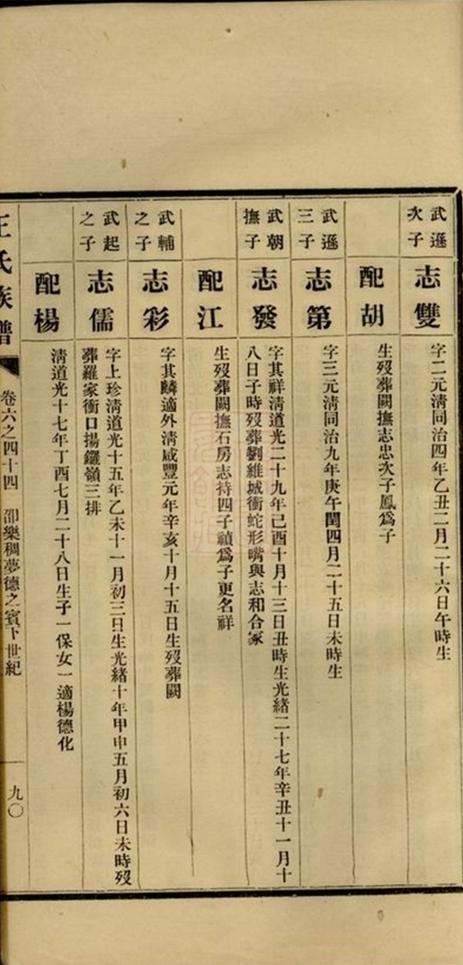 武遜次子 志雙 字二元清同治四年乙丑二月二十六日午時生
配胡 生歿葬闕撫志忠次子鳳爲子
武遜三子 志第 字三元清同治九年庚午閏四月二十五日未時生
武朝撫子 志發 字其祥清道光二十九年己酉十月十三日丑時生光緒二十七年辛丑十一月十
八日子時歿葬劉維城衝蛇形嘴與志和合冢
配江 生歿葬闕撫石房志持四子禎爲子更名祥
武輔之子 志彩 字其麟適外清咸豐元年辛亥十月十五日生歿葬闕
武起之子 志儒 字上珍清道光十五年乙未十一月初三日生光緒十年甲申五月初六日未時歿
葬羅家衝口揚鑼嶺三排
配楊 清道光十七年丁酉七月二十八日生子一保女一適楊德化
王氏族譜 卷六之四十四 卲樂稠夢德之賓下世紀 九〇